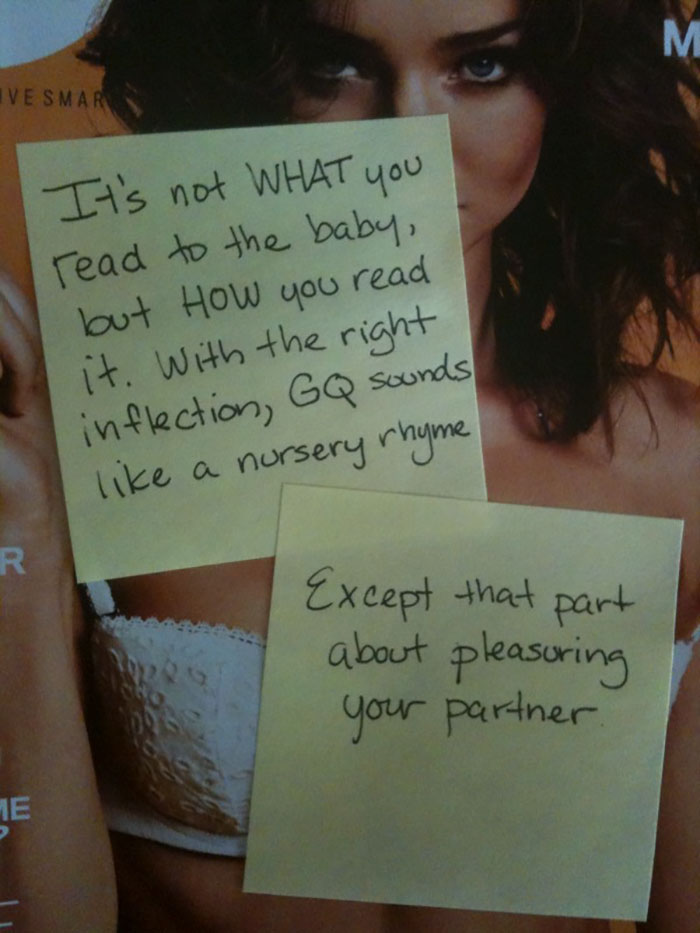 M
IVE SMAR
It's not WHAT you
read to the baby,
but HOW you read
it. With the right
inflection, GQ sounds
like a nursery rhyme
Except that part
about pleasuring
your partner
R
ME
?